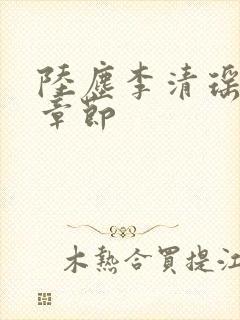 陸塵李清瑶
章節
木熱合買提江